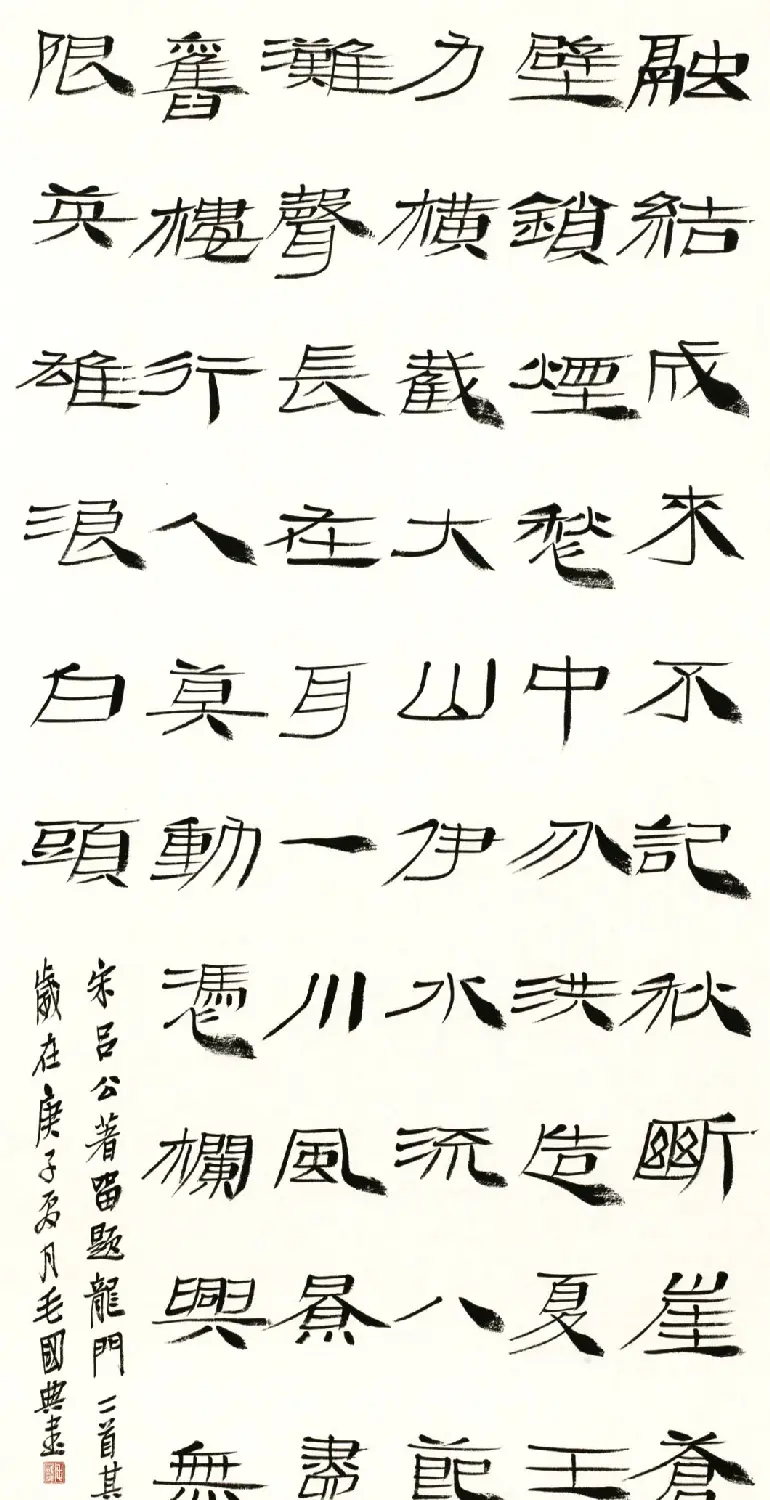 融結成來不記秋斷崖蒼
壁鎖煙愁中分洪造夏王
力橫截大山伊水流八節
灘聲長在耳一川風景盡
舊樓行人莫動憑欄興無
限英雄浪白頭
宋吕公著留題龍門二首其
歲在庚子夏月毛國典書